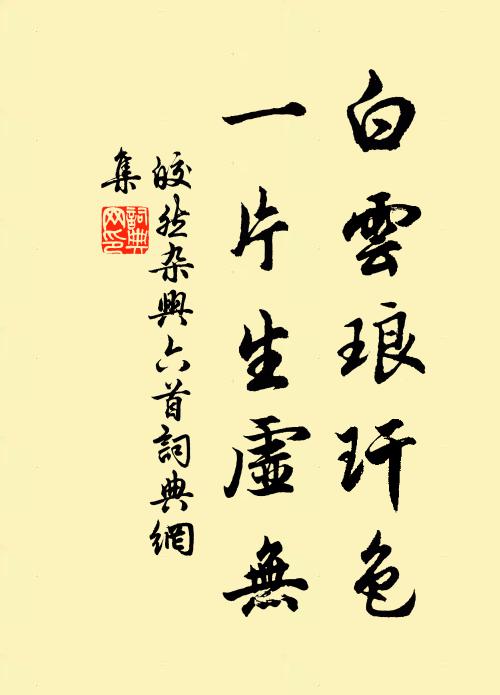 白雲琅玕色
一片生虛無
皎然杂興六首詞典網
集
詞典網印